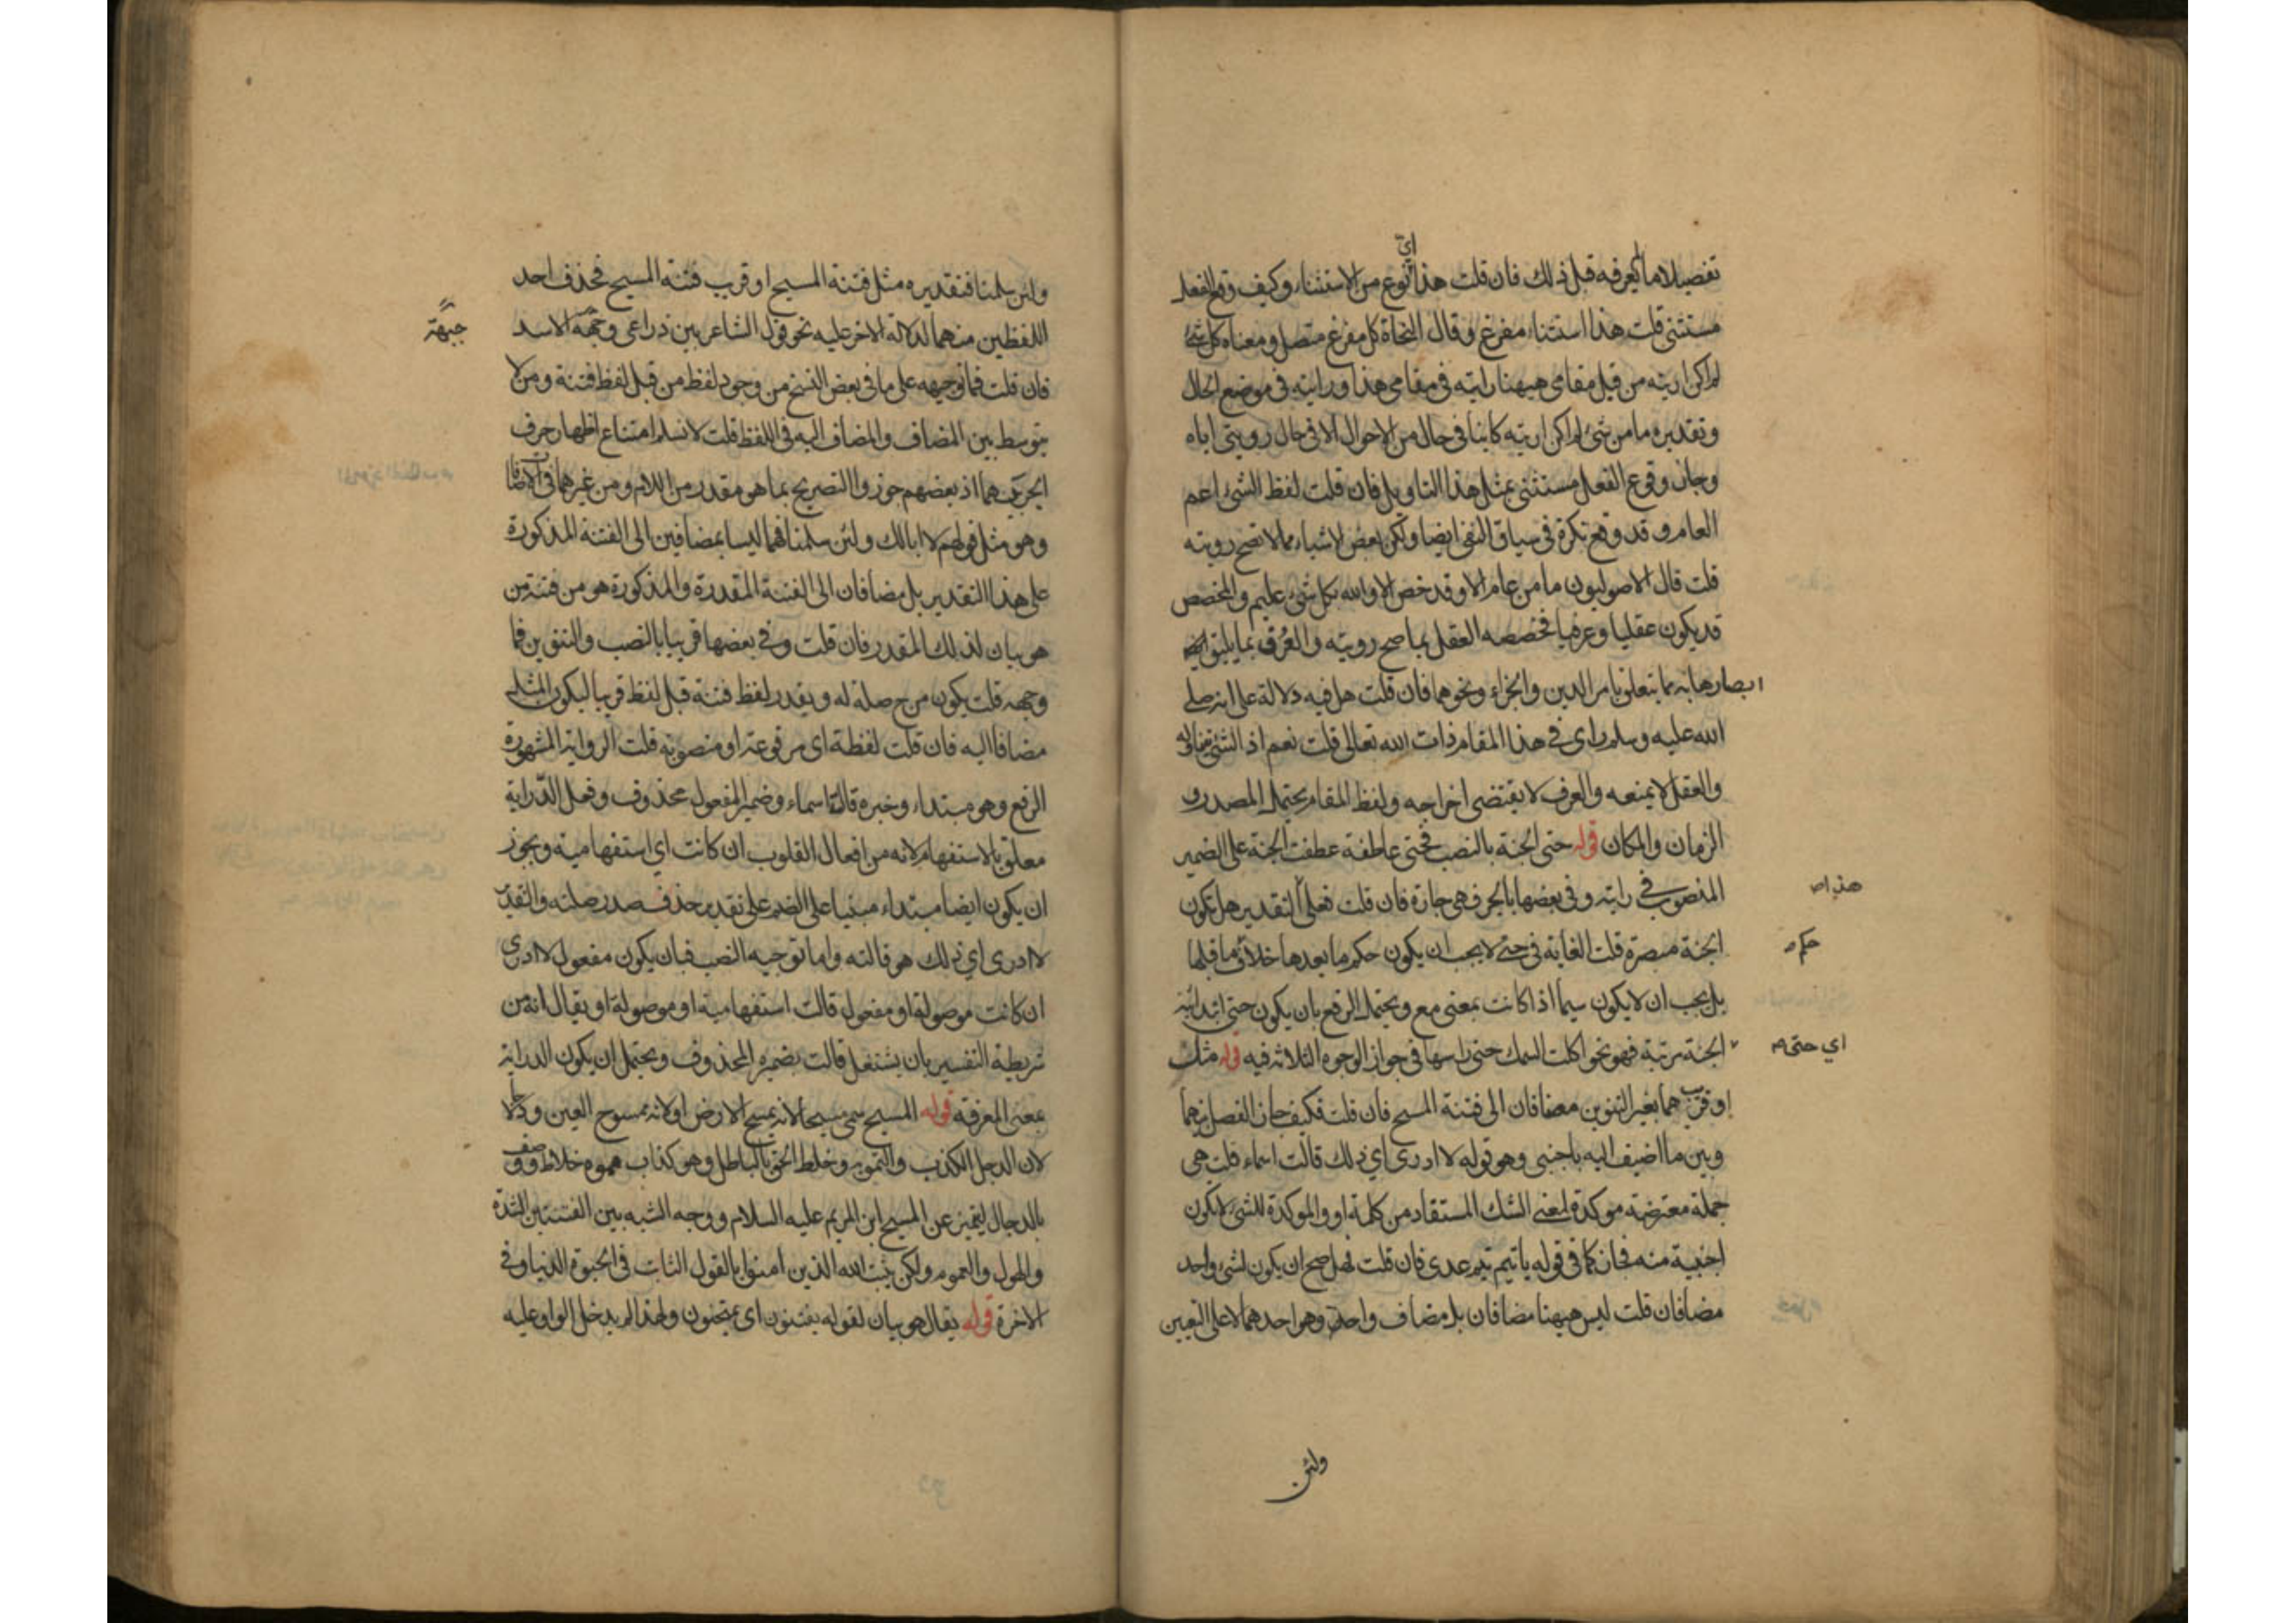 تفصيلا ما لم يعرفه قبل ذلك فان قلت هذا النوع من الاستثناء وكيف وقع الفعل
اي
مستثنى قلت هذا استثناء مفرغ وقال النحاة كل مفرغ متصل ومعناه كل شئ
لم اكن اريته من قبل مقامي ههنا رايته في مقامي هذا ورايته في موضع الحال
وتقديره ما من شئ لم اكن اريته كاينا في حال من الاحوال الا في حال رويتي اياه
وجاز وقوع الفعل مستثنى بمثل هذا التاويل فان قلت لفظ الشئ اعم
العام وقد وقع نكرة في سياق النفي ايضا ولكن بعض الاشياء مما لا تصح رويته
قلت قال الاصوليون ما من عام الا وقد خص الا والله بكل شئ عليم والمخصص
قد يكون عقليا وعرفيا فخصصه العقل بما صح رويته والعرف بما يليق ايضا
ابصارها به مما يتعلق بامر الدين والجزاء ونحوهما فان قلت هل فيه دلالة على انه صلى
الله عليه وسلم راى في هذا المقام ذات الله تعالى قلت نعم اذ الشئ يتناوله
والعقل لا يمنعه والعرف لا يقتضى اخراجه ولفظ المقام يحتمل المصدر و
الزمان والمكان قوله حتى الجنة بالنصب فحتى عاطفة عطفت الجنة على الضمير
المنصوب في رايته وفي بعضها بالجر فهي جارة فان قلت فعلى التقدير هل تكون
هذا ص
الجنة مبصرة قلت الغاية في حتى لا يجب ان يكون حكم ما بعدها خلاف ما قبلها
حكم م
بل يجب ان لا يكون سيما اذا كانت بمعنى مع ويحتمل الرفع بان يكون حتى ابتدائية
الجنة مرتبة فهو نحو اكلت السمك حتى راسها في جواز الوجوه الثلاثة فيه قوله مثل
اي حتى م
او قريب هما بغير التنوين مضافان الى فتنة المسيح فان قلت فكيف جاز الفصل بينهما
وبين ما اضيف اليه باجنبى وهو قوله لا ادرى اي ذلك قالت اسماء قلت هي
جملة معترضة موكدة لمعنى الشك المستفاد من كلمة او والموكدة للشئ لا يكون
اجنبية منه فجاز كما في قوله يا تيم تيم عدى فان قلت فهل صح ان يكون لشئ واحد
مضافان قلت ليس ههنا مضافان بل مضاف واحد وهو احدهما لا على التعيين
ولئن
ولئن سلمنا فتقديره مثل فتنة المسيح او قريب فتنة المسيح فحذف احد
اللفظين منهما لدلالة الاخر عليه نحو قول الشاعر بين ذراعي وجبهة الاسد
جبهة
فان قلت فما توجيهه على ما في بعض النسخ من وجود لفظ من قبل لفظ فتنة ومن لا
يتوسط بين المضاف والمضاف اليه في اللفظ قلت لا نسلم امتناع اظهار حرف
الجر بينهما اذ بعضهم جوزوا التصريح بما هو مقدر من اللام ومن غيرهما في الاضافات
وهو مثل قولهم لا ابا لك ولئن سلمنا فهما ليسا بمضافين الى الفتنة المذكورة
على هذا التقدير بل مضافان الى الفتنة المقدرة والمذكورة هو من فتنة من
هو بيان لذلك المقدر فان قلت وفي بعضها قريبا بالنصب والتنوين فما
وجهه قلت يكون من ح صلة له ويقدر لفظ فتنة قبل لفظ قريبا ليكون المثل
مضافا اليه فان قلت لفظة اي مرفوعة او منصوبة قلت الرواية المشهورة
الرفع وهو مبتداء وخبره قالت اسماء وضمير المفعول محذوف وفعل الدراية
معلق بالاستفهام لانه من افعال القلوب ان كانت اي استفهامية ويجوز
ان يكون ايضا مبتداء مبنيا على الضم على تقدير حذف صدر صلته والتقدير
لا ادرى اي ذلك هو قالته واما توجيه النصب فبان يكون مفعول لا ادرى
ان كانت موصولة او مفعول قالت استفهامية او موصولة او يقال انه من
شريطة التفسير بان يشتغل قالت بضميره المحذوف ويحتمل ان يكون الدراية
بمعنى المعرفة قوله المسيح سمى مسيحا لانه يمسح الارض او لانه ممسوح العين ودجالا
لان الدجل الكذب والتمويه وخلط الحق بالباطل وهو كذاب مموه خلاط ووصف
بالدجال ليتميز عن المسيح ابن المريم عليه السلام ووجه الشبه بين الفتنتين الشدة
والهول والعموم ولكن يثبت الله الذين امنوا بالقول الثابت في الحيوة الدنيا وفي
الاخرة قوله يقال هو بيان لقوله يفتنون اى يمتحنون ولهذا لم يدخل الواو عليه